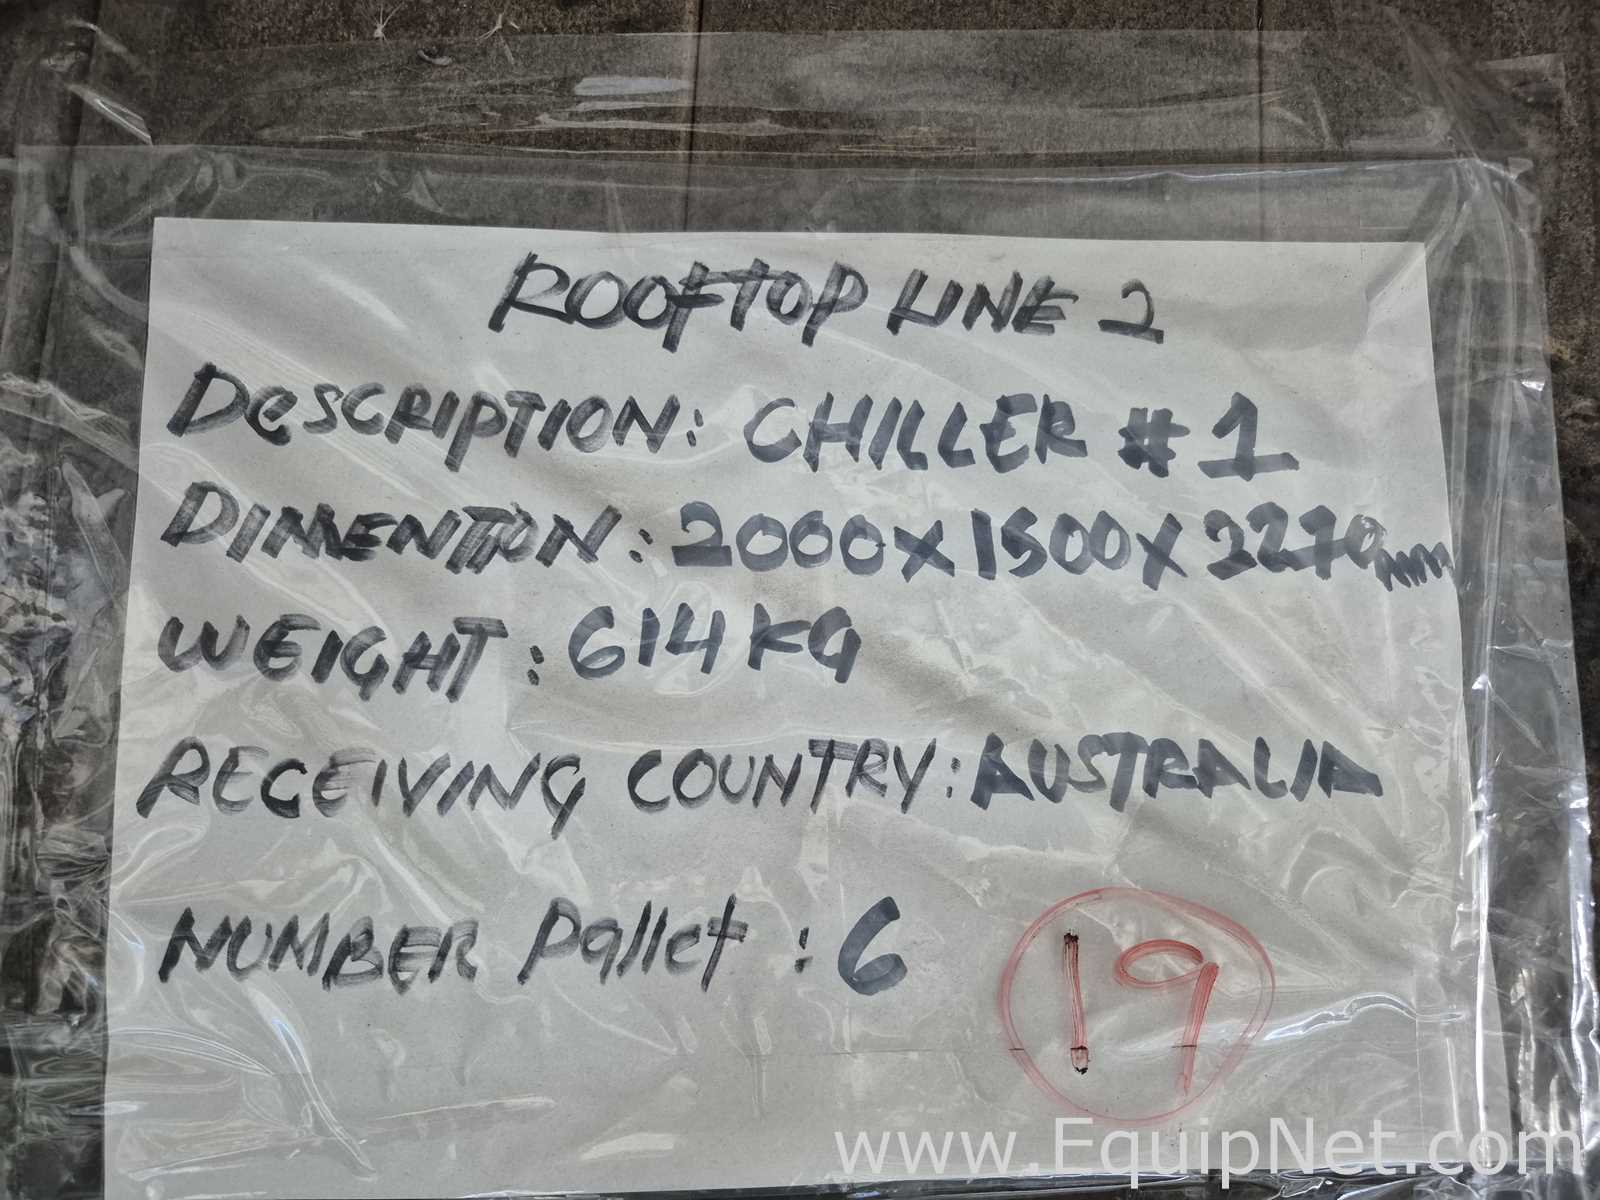 ROOFTOP LINE 2
DeSCRIPTION: CHILLER # 1
DIMENTION: 2000 X 1500 X 2270mm
WEIGHT: 614 KG
RECEIVING COUNTRY: AUSTRALIA
NUMBER pallet : 6
19
www.EquipNet.com